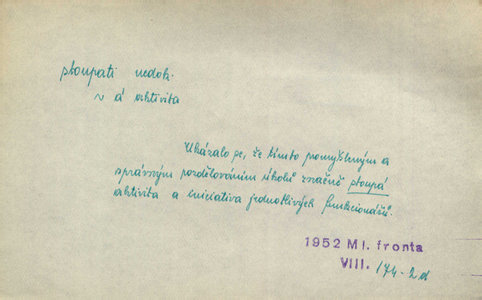 stoupati nedok.
~ á aktivita
Ukázalo se, že tímto promyšleným a
správným rozdělováním úkolů značně stoupá
aktivita a iniciativa jednotlivých funkcionářů.
1952 Ml. fronta
VIII. 174-2d